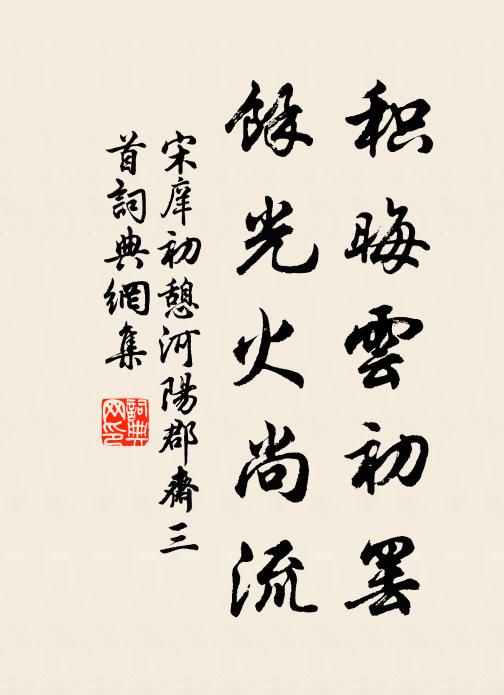 积晦雲初罢
餘光火尚流
宋庠初憩河陽郡齋三
首詞典網集
詞典
网印